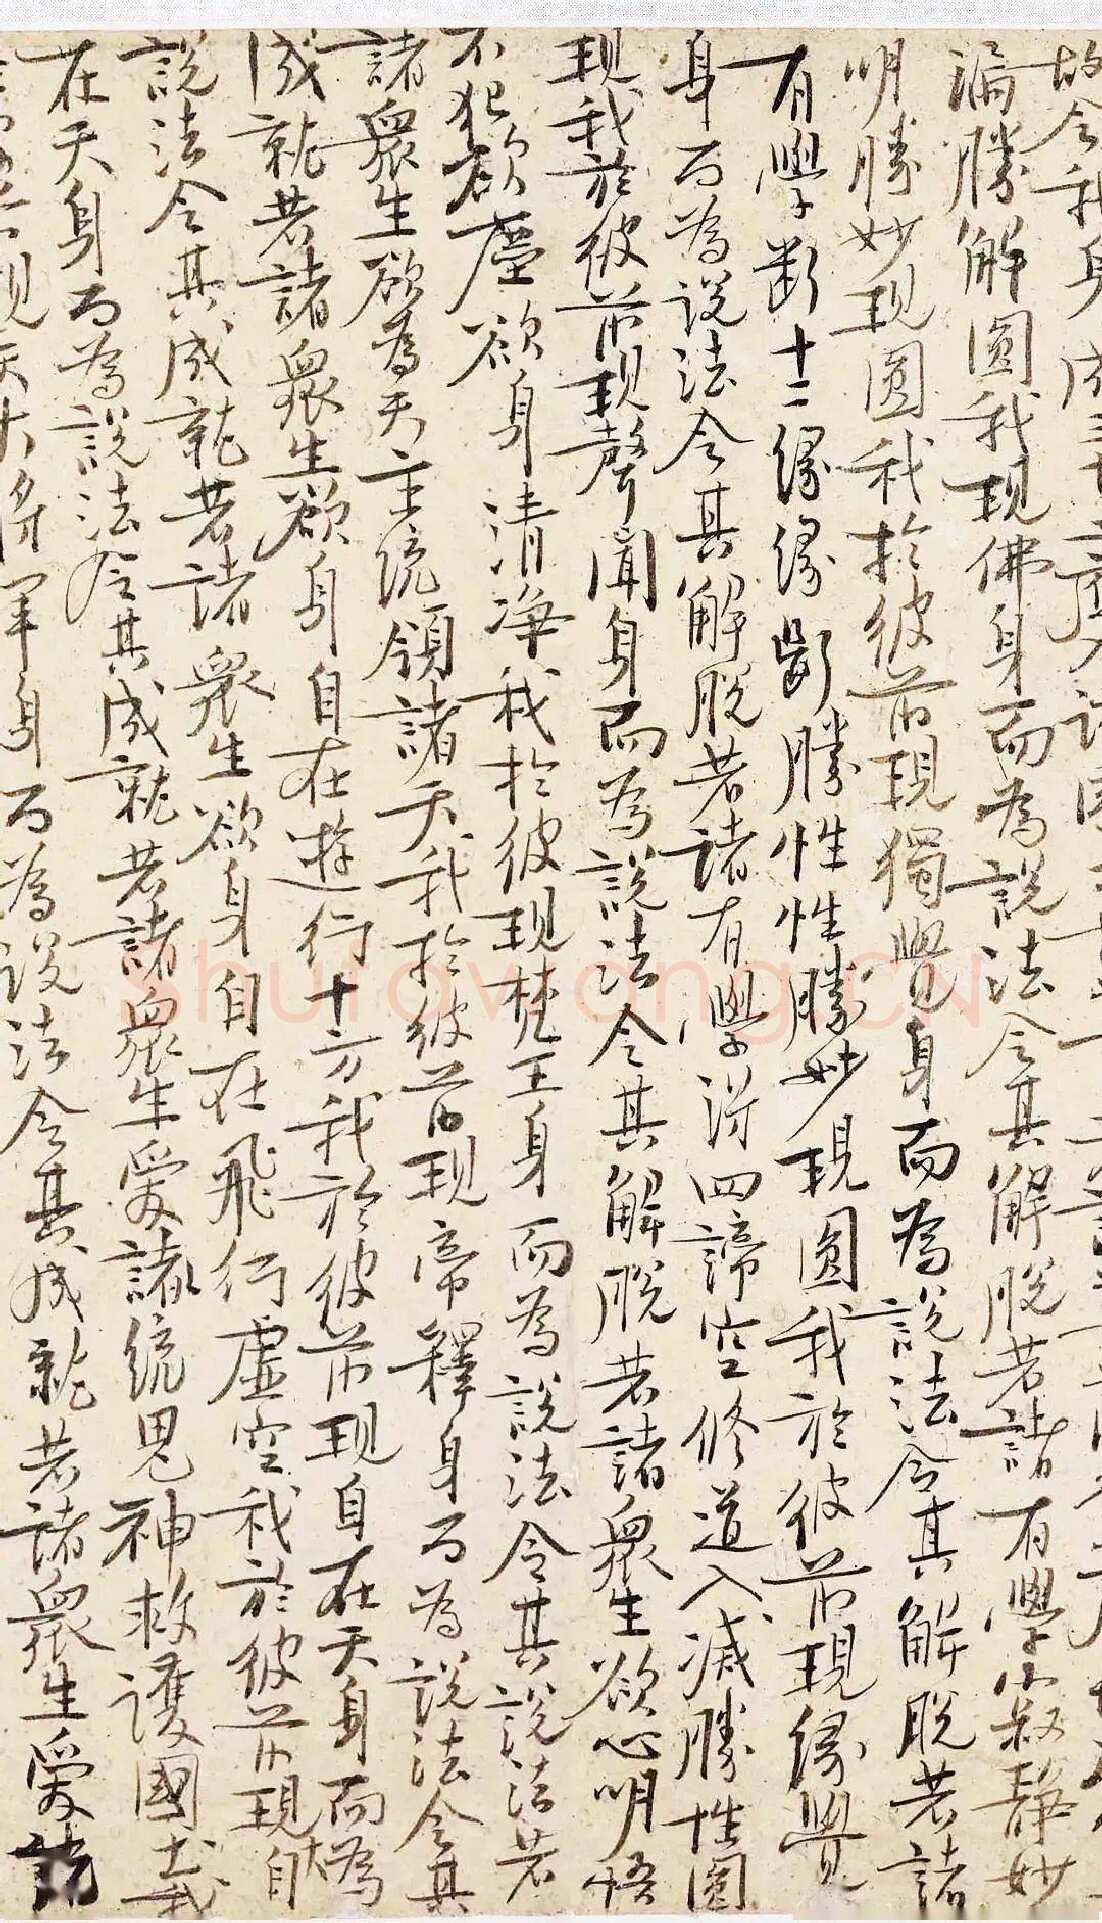 故令我身成三十二應入諸國
漏勝解圓我現佛身而為說法令其解脫若諸有學寂靜妙
明勝妙現圓我於彼前現獨覺身而為說法令其解脫若諸
有學斷十二緣緣斷勝性性勝妙現圓我於彼前現緣覺
身而為說法令其解脫若諸有學得四諦空修道入滅勝性圓
現我於彼前現聲聞身而為說法令其解脫若諸眾生欲心明悟
不犯欲塵欲身清淨我於彼現梵王身而為說法令其說法若
諸眾生欲為天主統領諸天我於彼前現帝釋身而為說法令其
成就若諸眾生欲身自在遊行十方我於彼前現自在天身而為
說法令其成就若諸眾生欲身自在飛行虛空我於彼前現大自
在天身而為說法令其成就若諸眾生愛諸統鬼神救護國土我
現天大將軍身而為說法令其成就若諸眾生愛
shufawang.CN